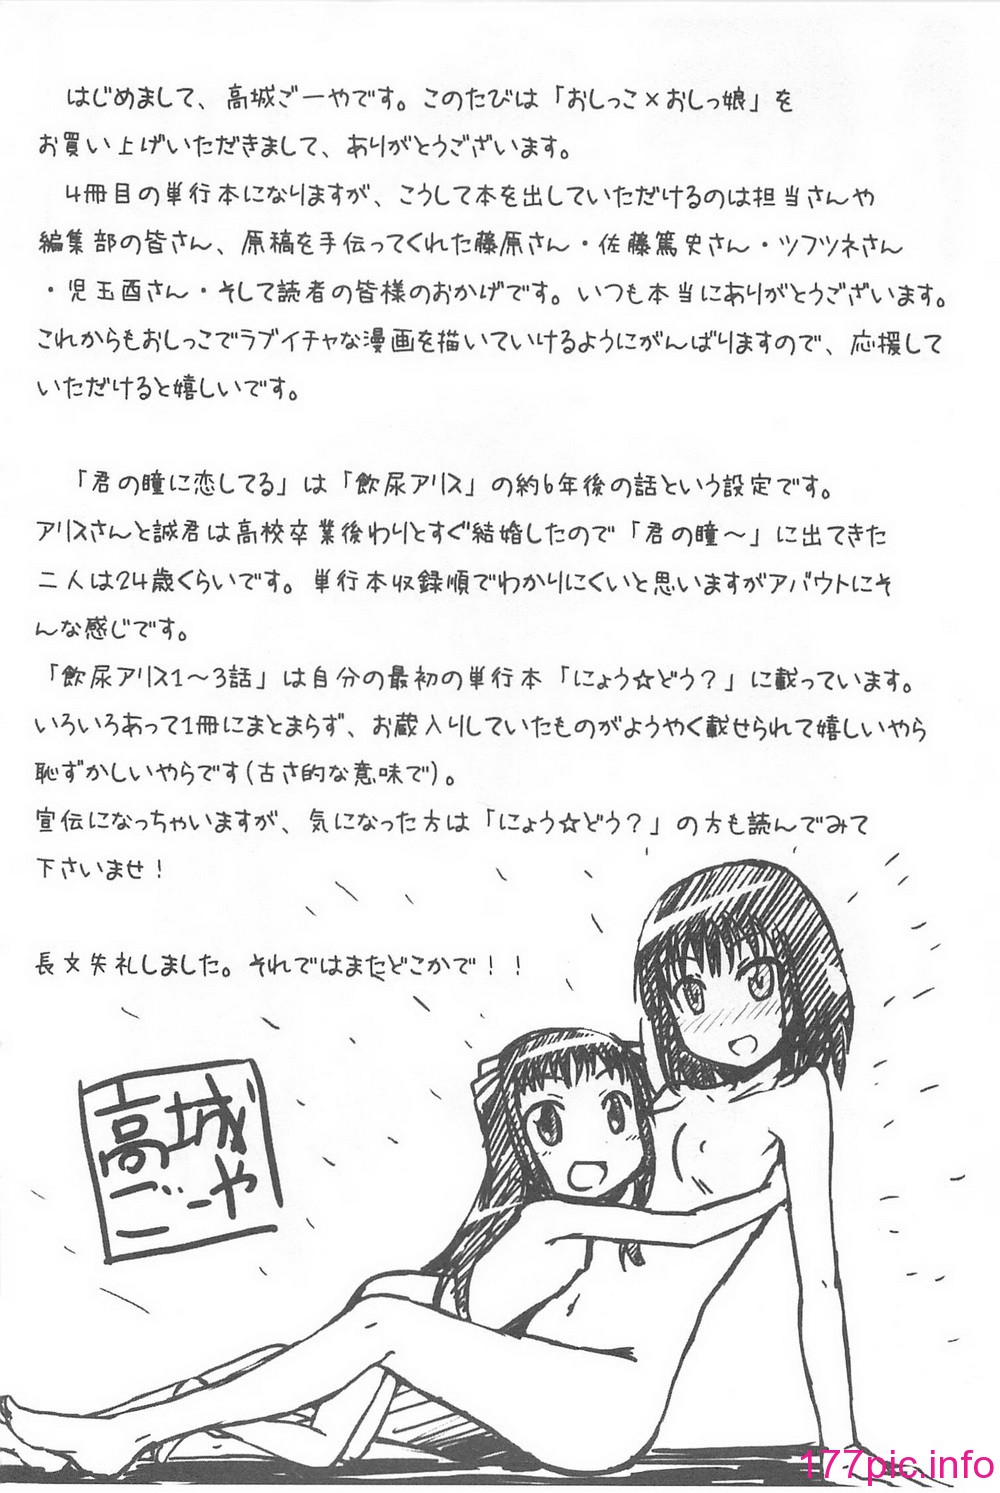 はじめまして、高城ごーやです。このたびは「おしっこ×おしっ娘」を
お買い上げいただきまして、ありがとうございます。
4冊目の単行本になりますが、こうして本を出していただけるのは担当さんや
編集部の皆さん、原稿を手伝ってくれた藤原さん・佐藤篤史さん・ツフツネさん
・児玉酉さん・そして読者の皆様のおかげです。いつも本当にありがとうございます。
これからもおしっこでラブイチャな漫画を描いていけるようにがんばりますので、応援して
いただけると嬉しいです。
「君の瞳に恋してる」は「飲尿アリス」の約6年後の話という設定です。
アリスさんと誠君は高校卒業後わりとすぐ結婚したので「君の瞳〜」に出てきた
二人は24歳くらいです。単行本収録順でわかりにくいと思いますがアバウトにそ
んな感じです。
「飲尿アリス1〜3話」は自分の最初の単行本「にょう☆どう?」に載っています。
いろいろあって1冊にまとまらず、お蔵入りしていたものがようやく載せられて嬉しいやら
恥ずかしいやらです(古さ的な意味で)。
宣伝になっちゃいますが、気になった方は「にょう☆どう?」の方も読んでみて
下さいませ!
長文失礼しました。それではまたどこかで!!
高城
ごーや
177pic.info